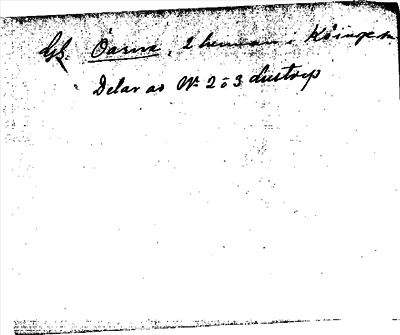 Gfl. Öarna, 2 hemman i Köinge sn
Delar av Nr 2 o 3 Lustorp